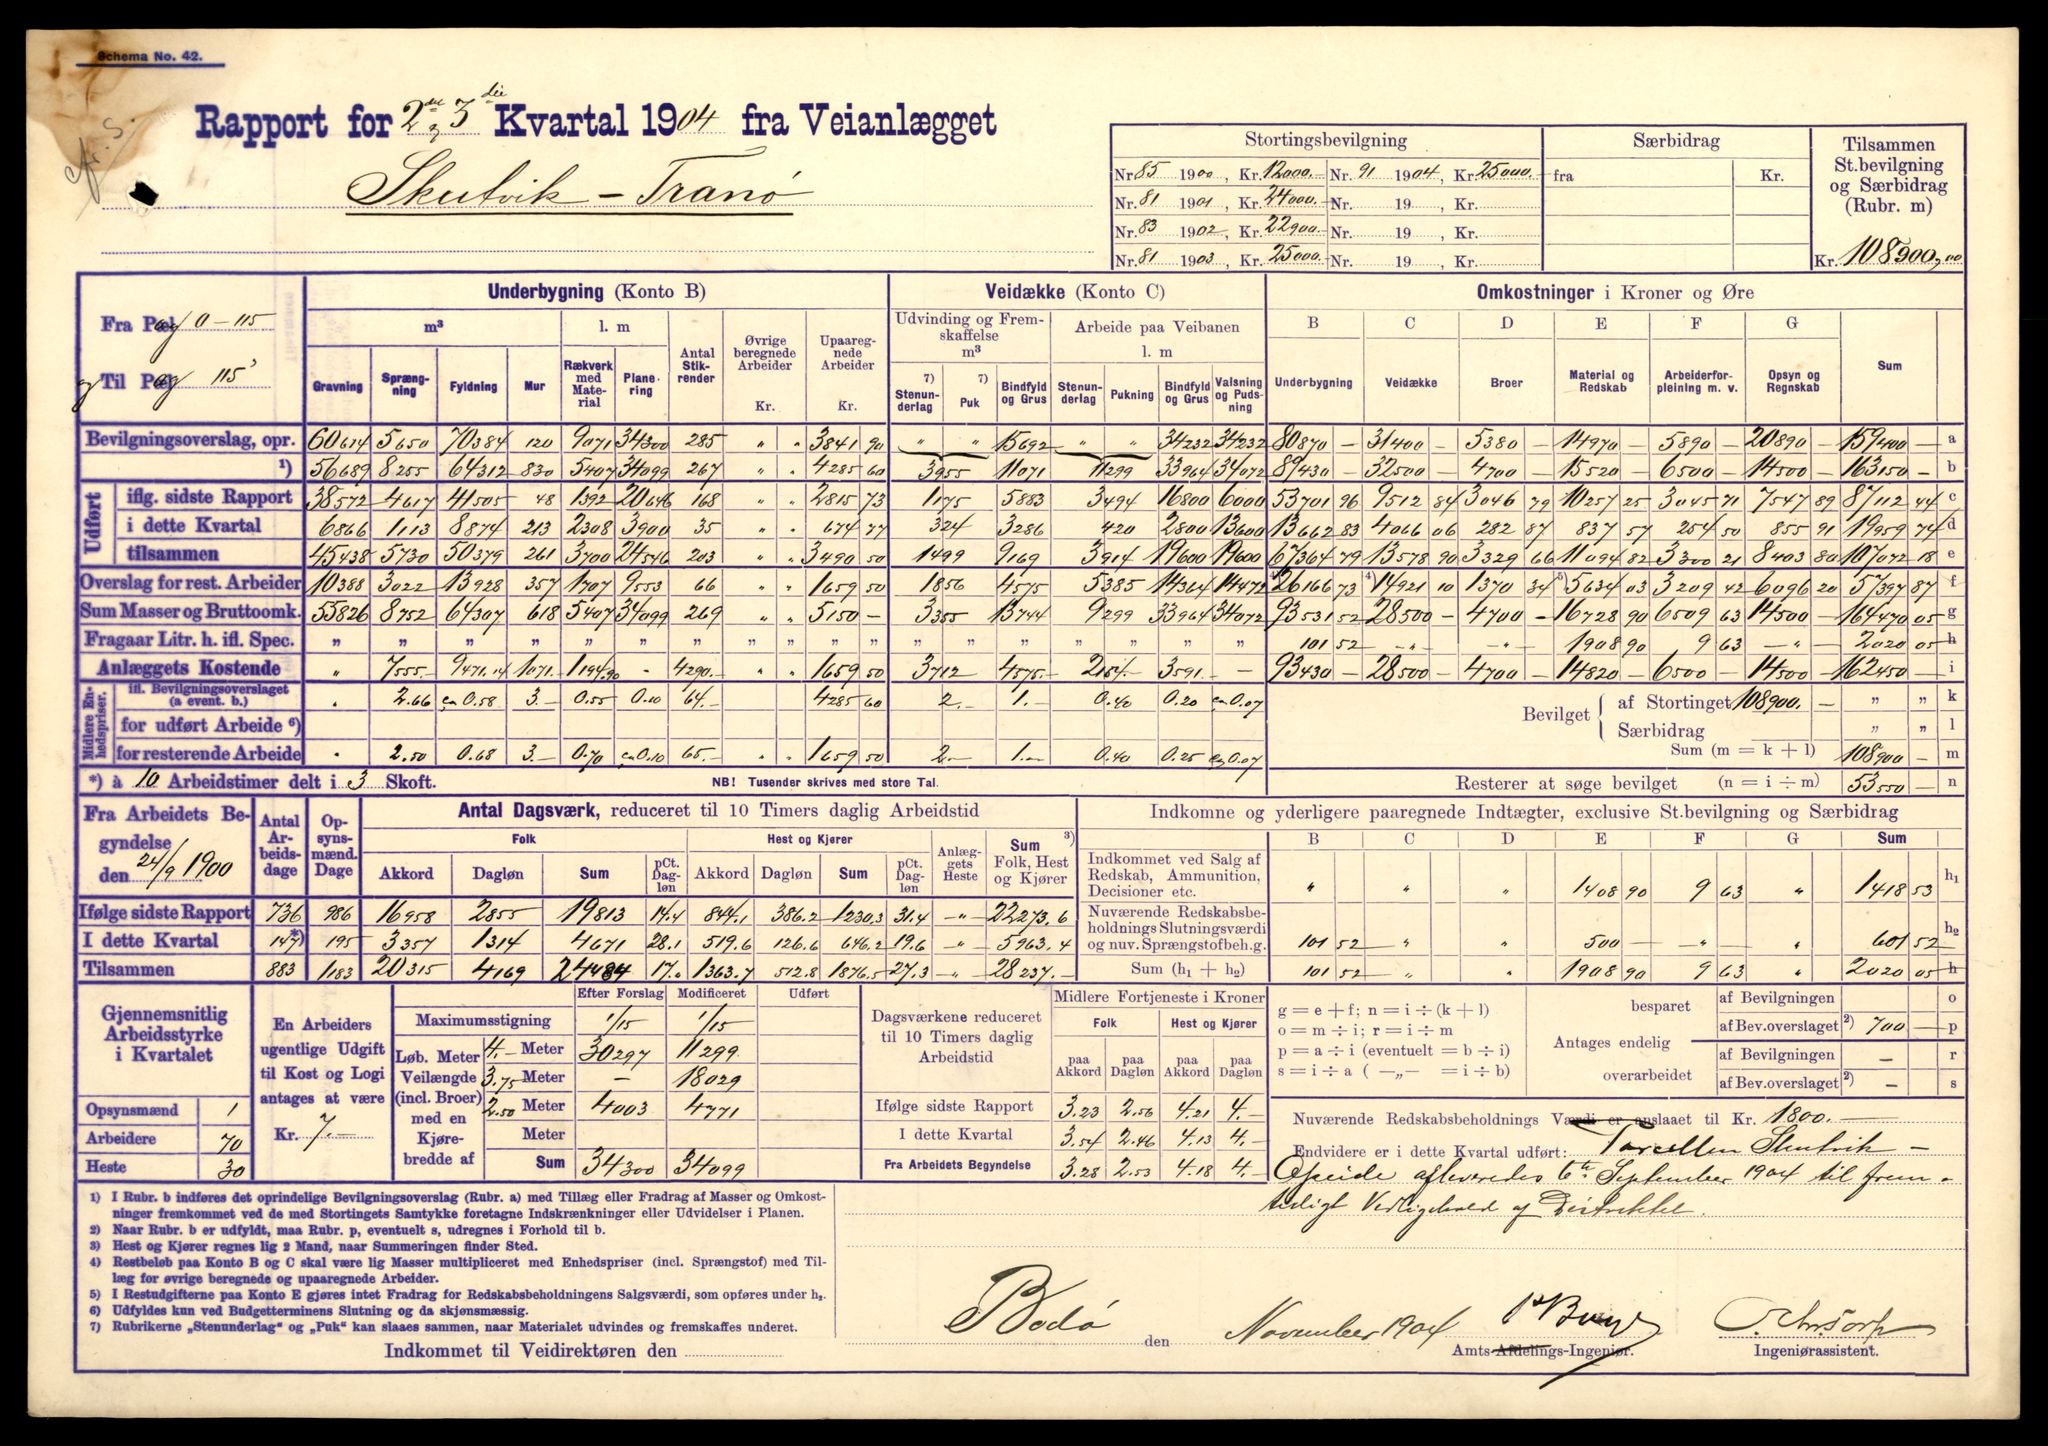 Schema No. 42.
Rapport for 2det & 3die Kvartal 1904 fra Veianlægget
Skutvik – Tranø
Stortingsbevilgning Særbidrag Tilsammen St.bevilgning og Særbidrag (Rubr. m)
Nr. 85 1900, Kr. 12000.- Nr. 91 1904, Kr. 25000.- fra Kr.
Nr. 81 1901, Kr. 24000.- Nr. 19 , Kr.
Nr. 83 1902, Kr. 22900.- Nr. 19 , Kr.
Nr. 81 1903, Kr. 25000.- Nr. 19 , Kr. Kr. 108900,00
Fra Pæl og 0 – 115
og Til Pæl og 115'
Underbygning (Konto B) Veidække (Konto C) Omkostninger i Kroner og Øre
m³ l. m Antal Stikrender Øvrige beregnede Arbeider Kr. Upaaregnede Arbeider Kr. Udvinding og Fremskaffelse m³ Arbeide paa Veibanen l. m B C D E F G
Gravning Sprængning Fyldning Mur Rækverk med Materiale Planering 7) Stenunderlag 7) Puk Bindfyld og Grus Stenunderlag Pukning Bindfyld og Grus Valsning og Pudsning Underbygning Veidække Broer Material og Redskab Arbeiderforpleining m. v. Opsyn og Regnskab Sum
Bevilgningsoverslag, opr. 60614 5650 70384 120 9071 34300 285 " " 3841 90 " " 15692 " " 34232 34232 80870 – 31400 – 5380 – 14970 – 5890 – 20890 – 159400 – a
1) 56689 8255 64312 830 5407 34099 267 " " 4285 60 3955 11071 11299 33964 34072 89430 – 32500 – 4700 – 15520 – 6500 – 14500 – 163150 – b
Udført
iflg. sidste Rapport 38572 4617 41505 48 1392 20646 168 " " 2815 73 1175 5883 3494 16800 6000 53701 96 9512 84 3046 79 10257 25 3045 71 7547 89 87112 44 c
i dette Kvartal 6866 1113 8874 213 2308 3900 35 " " 674 77 324 3286 420 2800 13600 13662 83 4066 06 282 87 837 57 254 50 855 91 19959 74 d
tilsammen 45438 5730 50379 261 3700 24546 203 " " 3490 50 1499 9169 3914 19600 19600 67364 79 13578 90 3329 66 11094 82 3300 21 8403 80 107072 18 e
Overslag for rest. Arbeider 10388 3022 13928 357 1707 9553 66 " " 1659 50 1856 4575 5385 14364 14472 4) 26166 73 4) 14921 10 1370 34 5) 5634 03 3209 42 6096 20 57397 87 f
Sum Masser og Bruttoomk. 55826 8752 64307 618 5407 34099 269 " " 5150 – 3355 13744 9299 33964 34072 93531 52 28500 – 4700 – 16728 90 6509 63 14500 – 164470 05 g
Fragaar Litr. h. ifl. Spec. " " " " " " " " " " " " " " " " 101 52 -"- -"- 1908 90 9 63 –"– 2020 05 h
Anlæggets Kostende " 7555.- 9471.14 1071.- 1194.90 - 4290.- " " 1659 50 3712 4575.- 2154.- 3591.- – 93430 – 28500 – 4700 – 14820 – 6500 – 14500 – 162450 – i
Midlere Enhedspriser.
ifl. Bevilgningsoverslaget (a event. b.) " 2.66 ca 0.58 3.- 0.55 0.10 64.- " " 4285 60 2.- 1.- 0.40 0.20 ca 0.07 Bevilget af Stortinget 108900. – " " k
for udført Arbeide 6) Særbidrag " " l
for resterende Arbeide " 2.50 0.68 3.- 0.70 ca 0.10 65.- " " 1659 50 2.- 1.- 0.40 0.25 ca 0.07 Sum (m = k + l) 108900 – m
*) à 10 Arbeidstimer delt i 3 Skoft. NB! Tusender skrives med store Tal. Resterer at søge bevilget (n = i ÷ m) 53550 – n
Fra Arbeidets Begyndelse den 24/9 1900
Antal Arbeidsdage Opsynsmænd. Dage Antal Dagsværk, reduceret til 10 Timers daglig Arbeidstid
Folk Hest og Kjører Anlæggets Heste Sum 3) Folk, Hest og Kjører
Akkord Dagløn Sum pCt. Dagløn Akkord Dagløn Sum pCt. Dagløn
Ifølge sidste Rapport 736 986 16958 2855 19813 14.4 844.1 386.2 1230.3 31.4 –"– 22273.6
I dette Kvartal 147*) 195 3357 1314 4671 28.1 519.6 126.6 646.2 19.6 –"– 5963.4
Tilsammen 883 1183 20315 4169 24484 17.0 1363.7 512.8 1876.5 27.3 –"– 28237.–
Indkomne og yderligere paaregnede Indtægter, exclusive St.bevilgning og Særbidrag
B C D E F G Sum
Indkommet ved Salg af Redskab, Ammunition, Decisioner etc. " " " 1408 90 9 63 " 1418 53 h1
Nuværende Redskabsbeholdnings Slutningsværdi og nuv. Sprængstofbeh.g. 101 52 " " 500 – –"– " 601 52 h2
Sum (h1 + h2) 101 52 " " 1908 90 9 63 " 2020 05 h
Gjennemsnitlig Arbeidsstyrke i Kvartalet
Opsynsmænd 1
Arbeidere 70
Heste 30
En Arbeiders ugentlige Udgift til Kost og Logi antages at være
Kr. 7.–
Efter Forslag Modificeret Udført
Maximumsstigning 1/15 1/15
Løb. Meter Veilængde (incl. Broer) med en Kjørebredde af
4.- Meter 30297 11299
3.75 Meter – 18029
2.50 Meter 4003 4771
Meter
Sum 34300 34099
Dagsværkene reduceret til 10 Timers daglig Arbeidstid
Midlere Fortjeneste i Kroner
Folk Hest og Kjører
paa Akkord paa Dagløn paa Akkord paa Dagløn
Ifølge sidste Rapport 3.23 2.56 4.21 4.-
I dette Kvartal 3.54 2.46 4.13 4.-
Fra Arbeidets Begyndelse 3.28 2.53 4.18 4.-
g = e + f; n = i ÷ (k + l)
o = m ÷ i; r = i ÷ m
p = a ÷ i (eventuelt = b ÷ i)
s = i ÷ a ( —„— = i ÷ b)
Antages endelig
besparet af Bevilgningen o
af Bev.overslaget 2) 700 – p
overarbeidet af Bevilgningen – r
af Bev.overslaget 2) – s
Nuværende Redskabsbeholdnings Værdi er anslaaet til Kr. 1800.–
Endvidere er i dette Kvartal udført: Parcellen Skutvik –
Opeide afleveredes 6te September 1904 til frem-
tidigt Vedligehold af Distriktet.
1) I Rubr. b indføres det oprindelige Bevilgningsoverslag (Rubr. a) med Tillæg eller Fradrag af Masser og Omkost-
ninger fremkommet ved de med Stortingets Samtykke foretagne Indskrænkninger eller Udvidelser i Planen.
2) Naar Rubr. b er udfyldt, maa Rubr. p, eventuelt s, udregnes i Forhold til b.
3) Hest og Kjører regnes lig 2 Mand, naar Summeringen finder Sted.
4) Restbeløb paa Konto B og C skal være lig Masser multipliceret med Enhedspriser (incl. Sprængstof) med Til-
læg for øvrige beregnede og upaaregnede Arbeider.
5) I Restudgifterne paa Konto E gjøres intet Fradrag for Redskabsbeholdningens Salgsværdi, som opføres under h2.
6) Udfyldes kun ved Budgetterminens Slutning og da skjønsmæssig.
7) Rubrikerne „Stenunderlag" og „Puk" kan slaaes sammen, naar Materialet udvindes og fremskaffes underet.
Indkommet til Veidirektøren den
Bodø den November 1904
Amts-Afdelings-Ingeniør.
Ingeniørassistent.